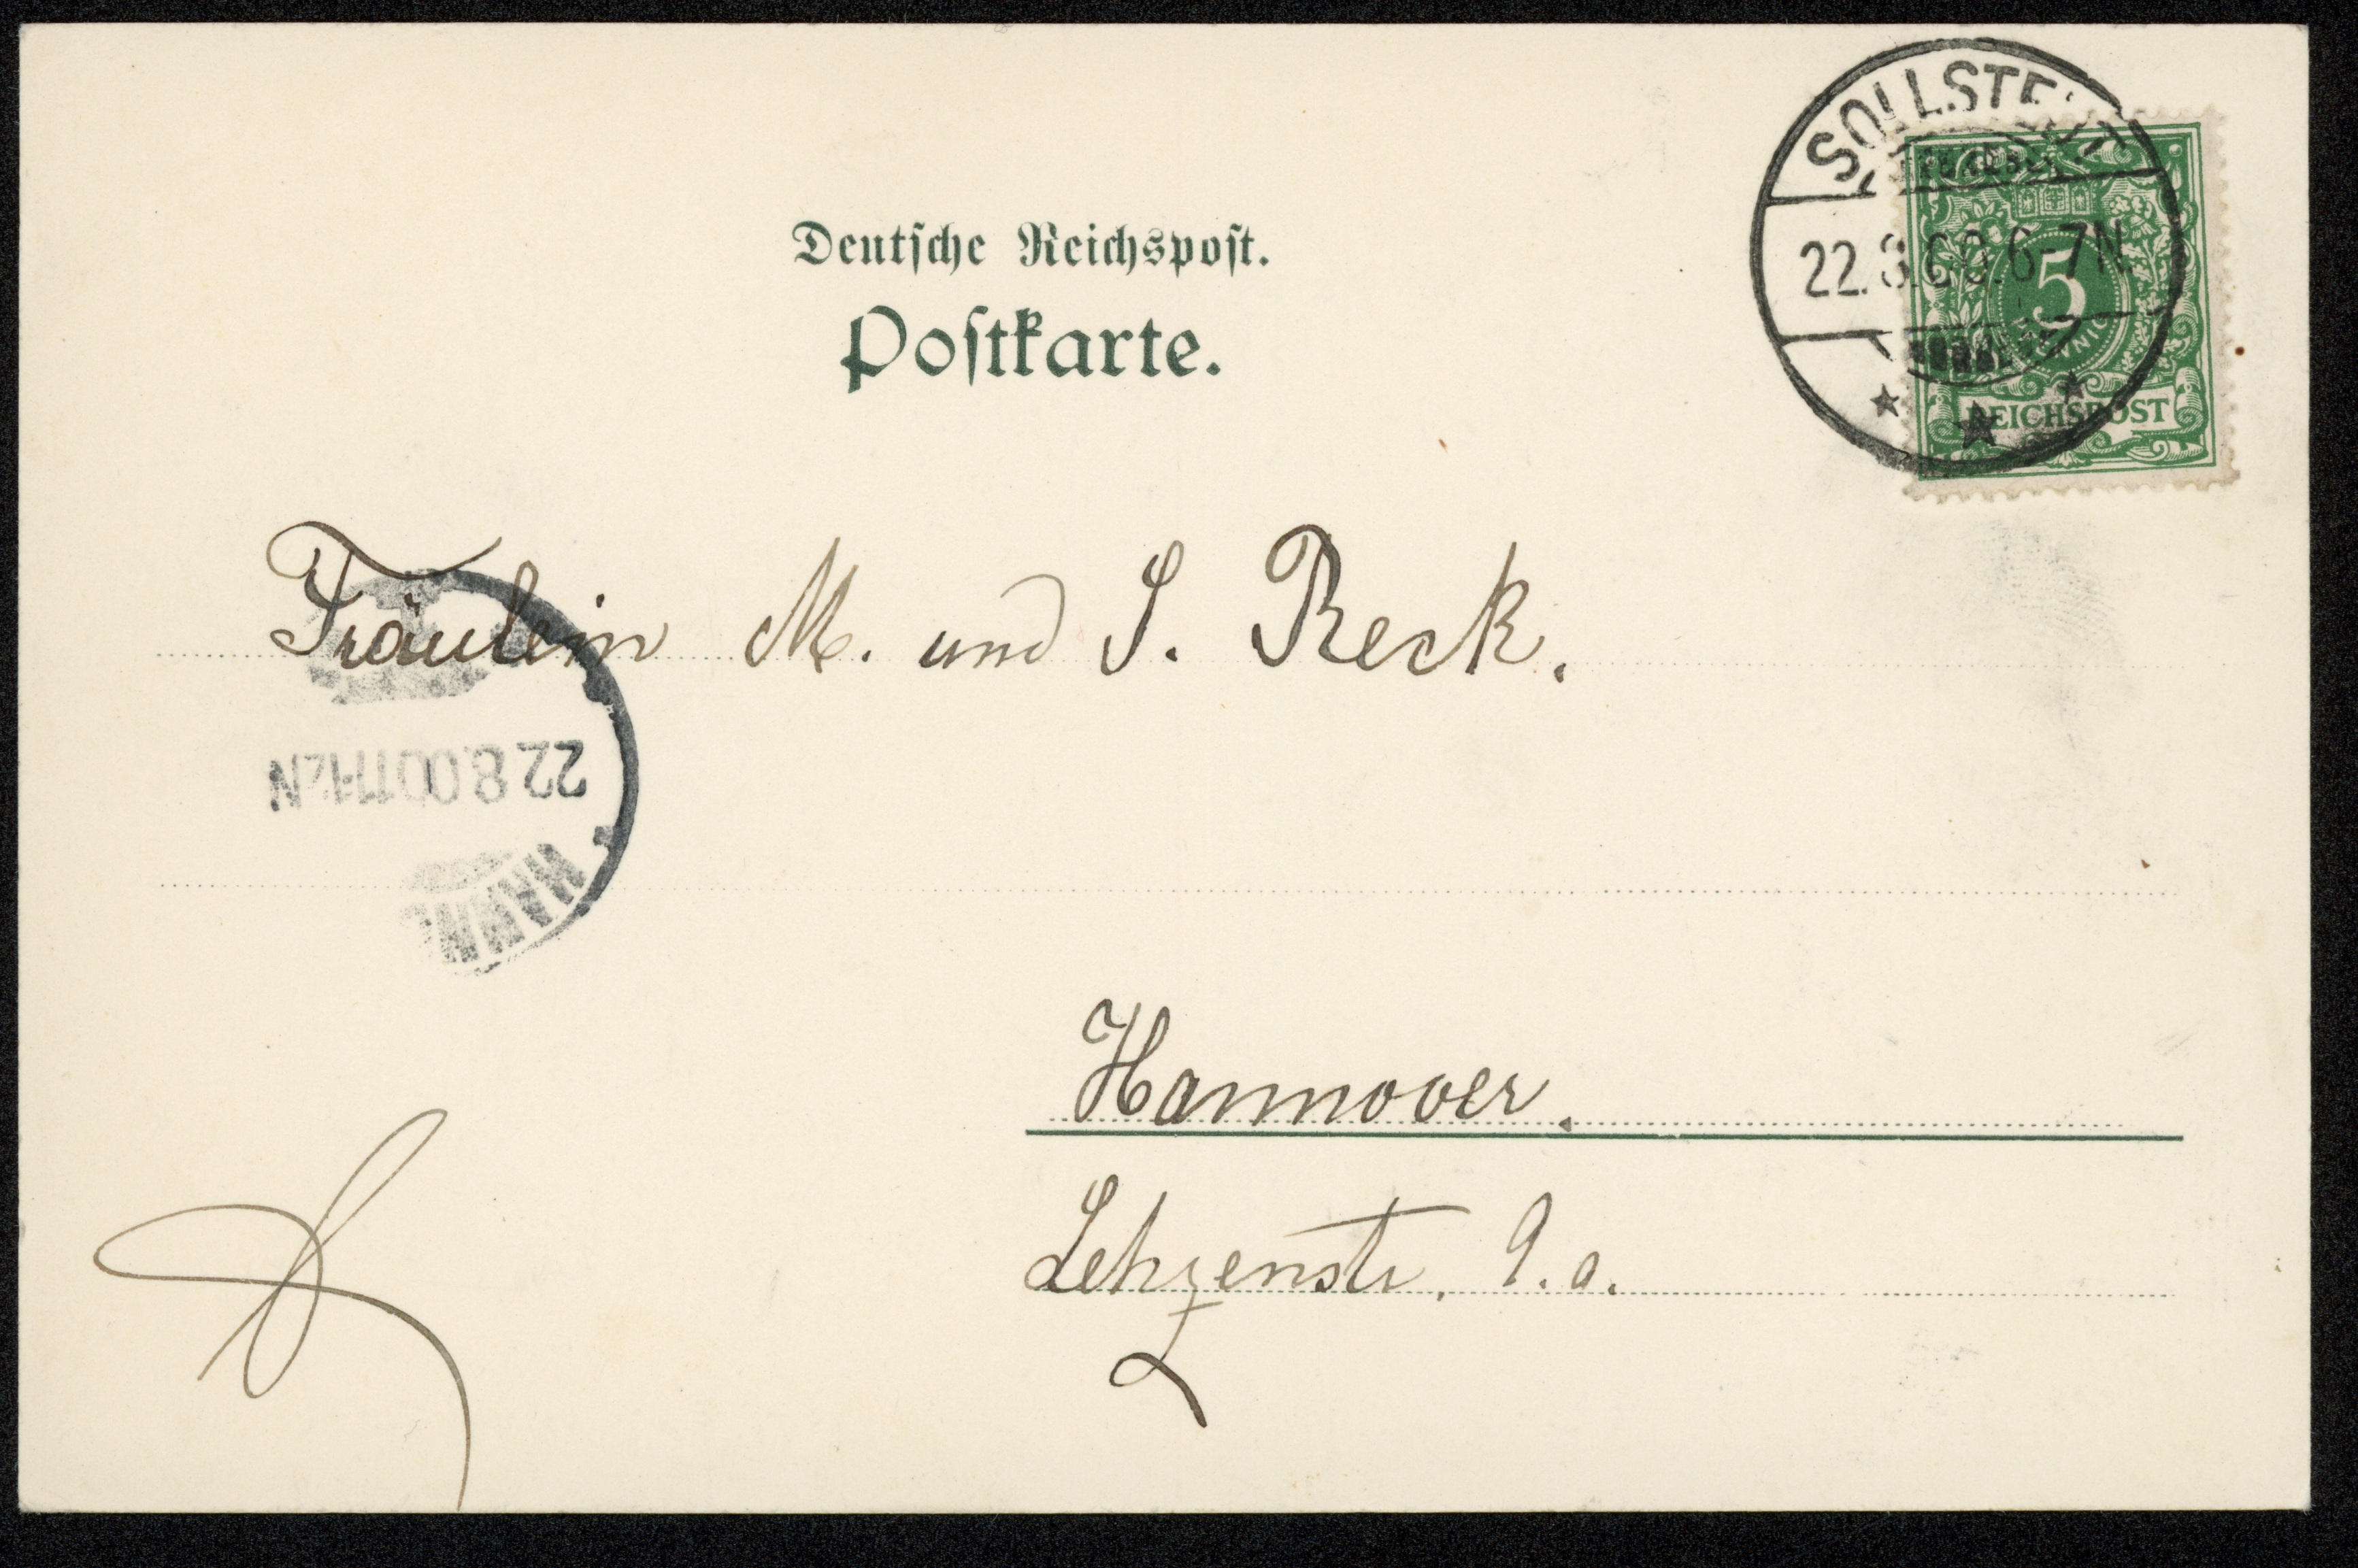 SOLLSTEDT
22.8.00.6-7N
5
PFENNIG
REICHSPOST
Deutsche Reichspost.
Postkarte.
Fräulein M. und S. Reck.
22.8.00 11-12N
Hannover.
Lehzenstr. 9.a.